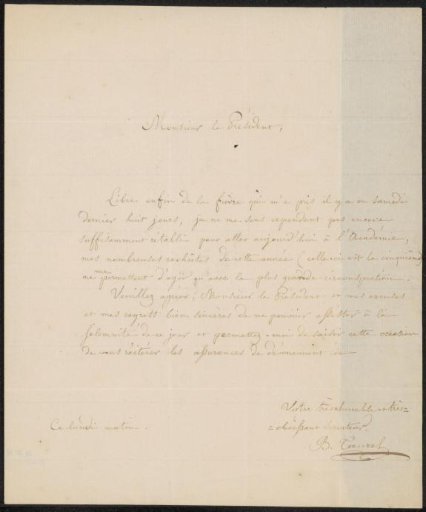 Monsieur le Président,
Libre enfin de la fièvre qui m'a pris il y a eu samedi
dernier huit jours, je ne me sens cependant pas encore
suffisamment rétabli pour aller aujourd'hui à l'Académie,
mes nombreuses rechûtes de cette année (celle-ci est la cinquième)
me permettent d'agir qu'avec la plus grande circonspection.
Veuillez agréer, Monsieur le Président et mes excuses
et mes regrets bien sincères de ne pouvoir assister à la
solemnité de ce jour et permettez-moi de saisir cette occasion
de vous réitérer les assurances de dévouement de
Votre très humble et très
obéissant serviteur
B.
Ce lundi matin.